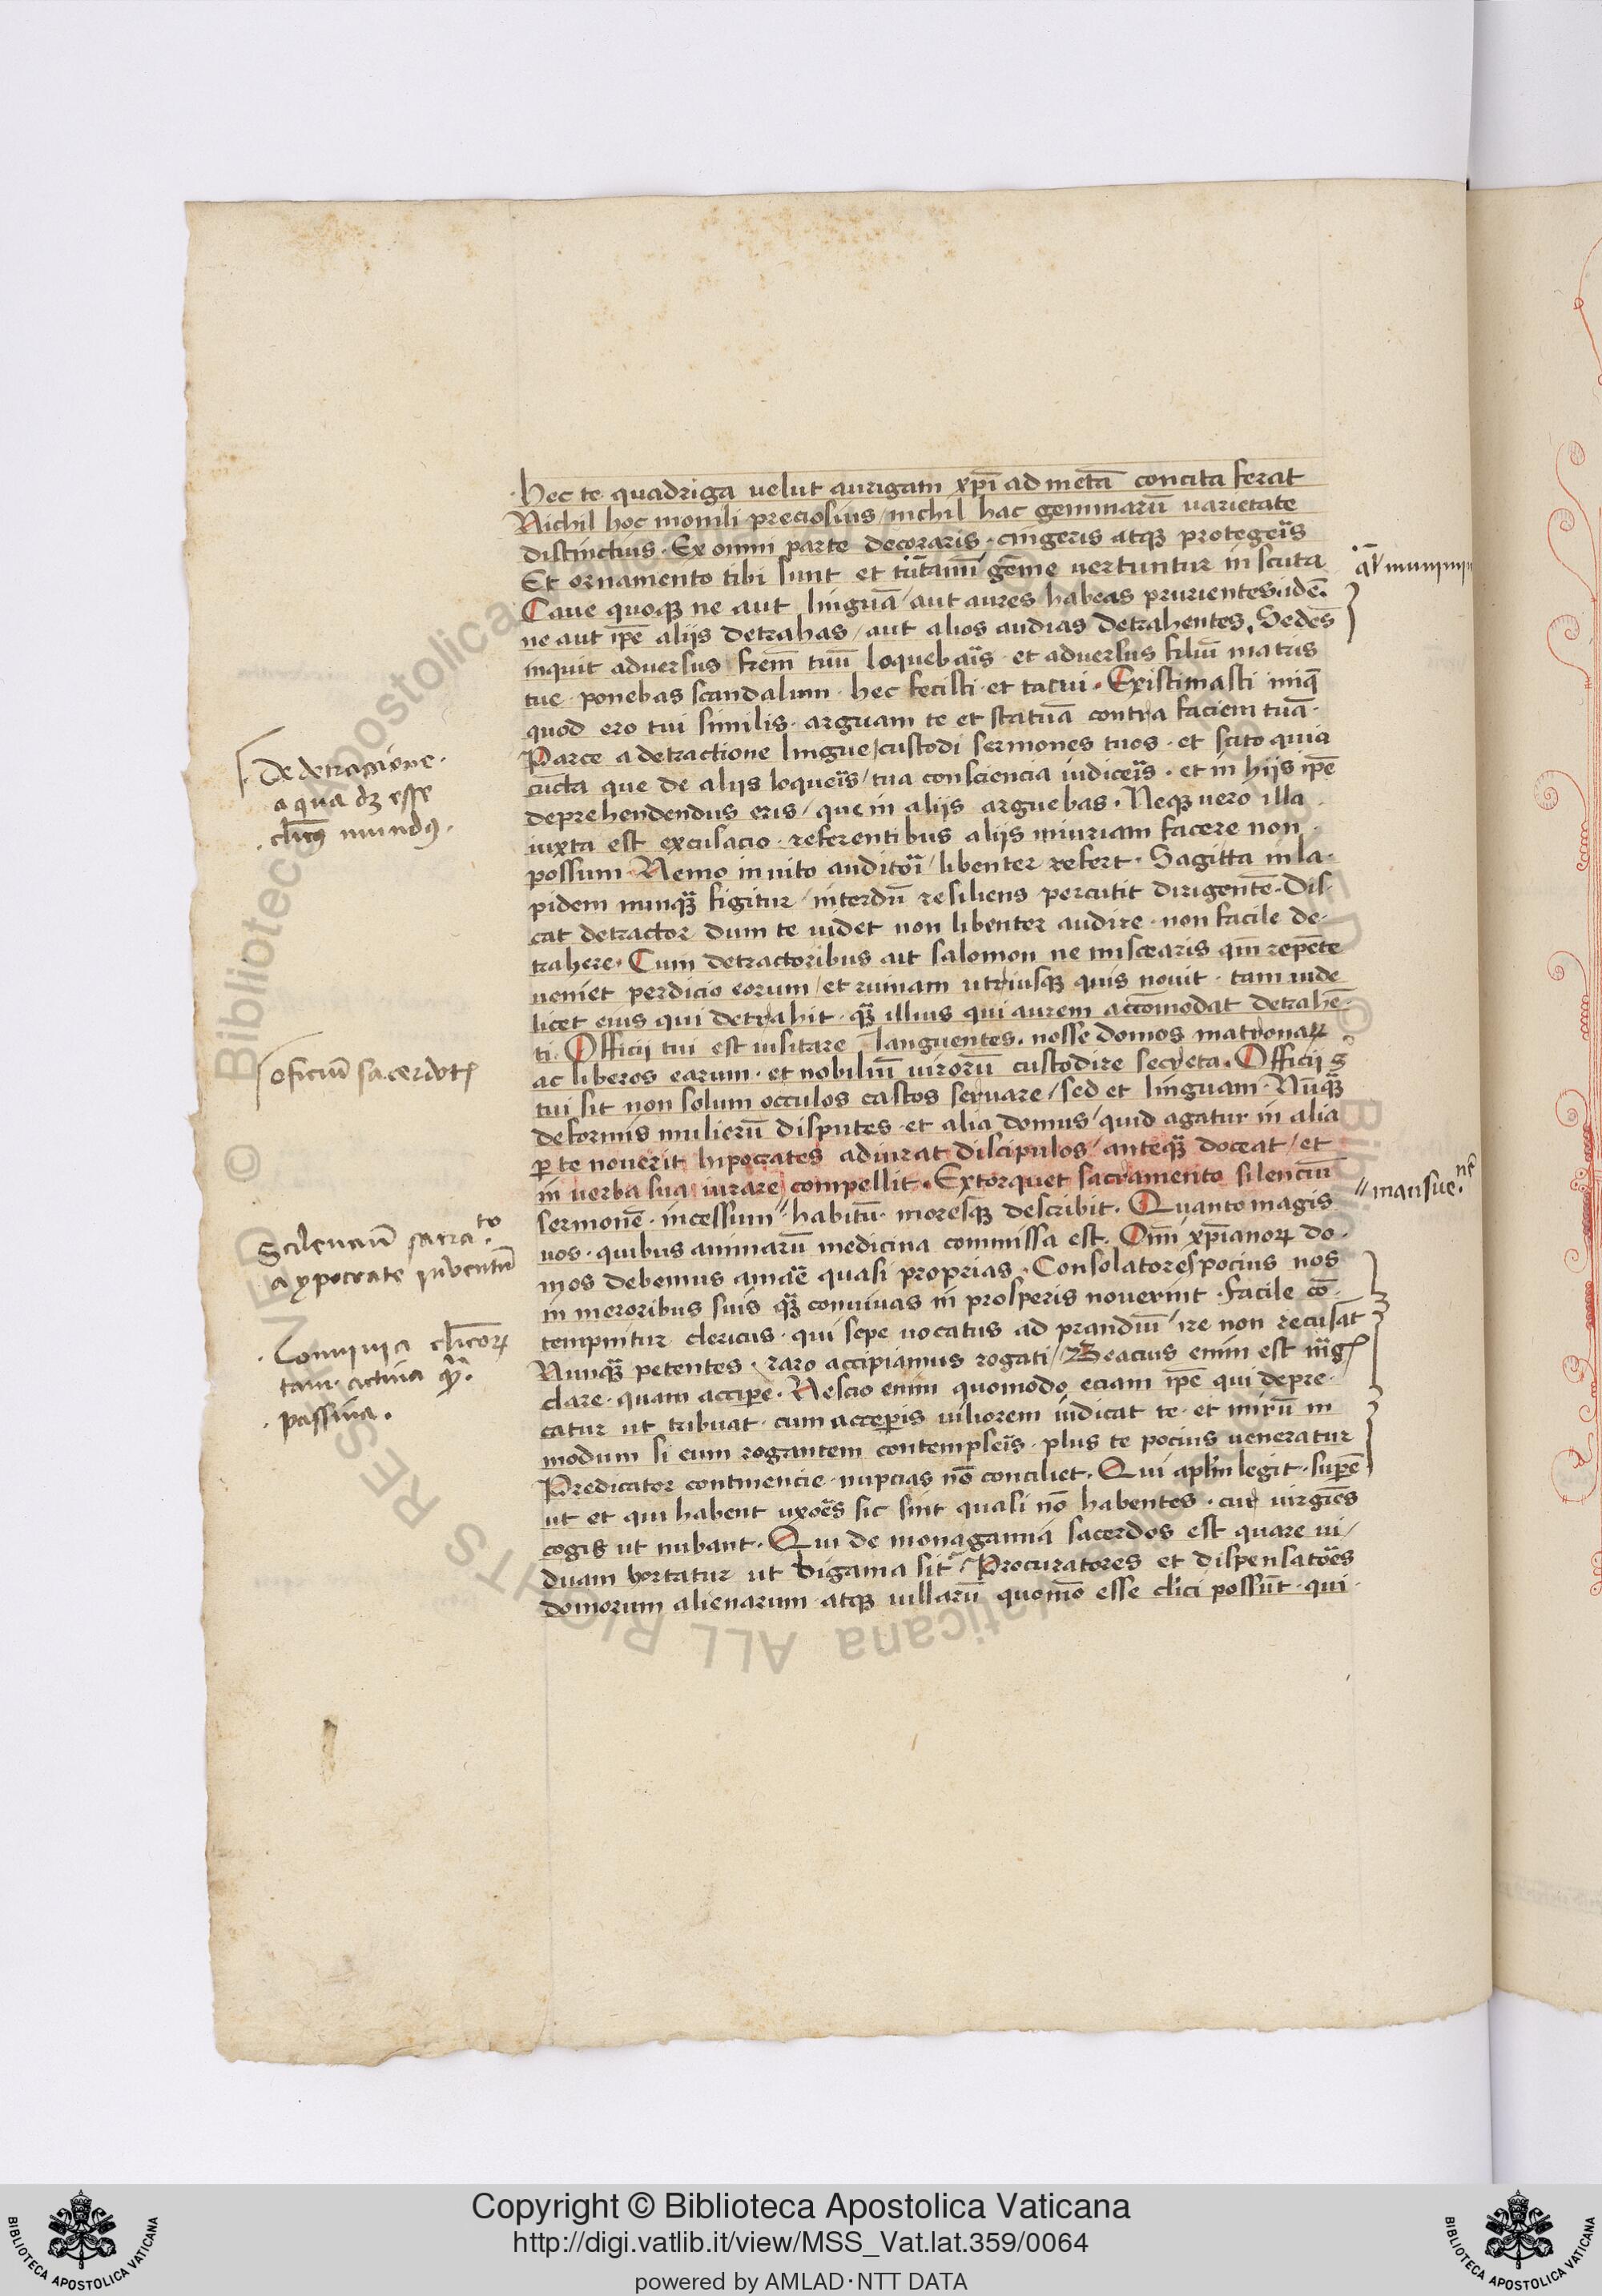 Hec te quadriga uelut aurigam xp̄i ad metā concita ferat
Nichil hoc monili preciosius / nichil hac gemmarū uarietate
distinctius · Ex omni parte decoraris · cingeris atqꝫ protegeris
Et ornamento tibi sunt et tutamini gēme uertuntur in scuta
Caue quoqꝫ ne aut linguā / aut aures habeas prurientes · id ē ·
ne aut ip̄e alijs detrahas / aut alios audias detrahentes. Sedēs
inquit aduersus frēm tuū loquebaris · et aduersus filiū matris
tue · ponebas scandalum · hec fecisti · et tacui · Existimasti iniqͤ
quod ero tui similis · arguam te et statuā contra faciem tuā ·
Parce a detractione lingue / custodi sermones tuos · et scito quia
cuncta que de alijs loqueris / tua consciencia iudiceris · et in hijs ip̄e
deprehendendus eris / que in alijs arguebas · Neqꝫ uero illa
iuxta est excusacio · referentibus alijs iniuriam facere non
possum · Nemo inuito auditori / libenter refert · Sagitta in la-
pidem nunqꝫ figitur / interdū resiliens percutit dirigentē · Dis-
cat detractor dum te uidet non libenter audire · non facile de-
trahere · Cum detractoribus ait salomon ne miscearis qm̄ repēte
ueniet perdicio eorum / et ruinam utriusqꝫ quis nouit · tam uide
licet eius qui detrahit · qꝫ illius qui aurem accōmodat detrahē-
ti · Officij tui est uisitare languentes · nosse domos matronaꝝ
ac liberos earum · et nobiliū uirorū custodire secreta · Officij gͦ
tui sit non solum occulos castos seruare / sed et linguam · Nūqꝫ
de formis mulierū disputes · et alia domus / quid agatur in alia
p te nouerit hipocrates adiurat discipulos / anteqꝫ doceat / et
in uerba sua iurare compellit · Extorquet sacramento silenciū
sermonē · incessum // habitū · moresqꝫ describit · Quanto magis
nos · quibus animarū medicina commissa est · Om̄ xp̄ianoꝝ do-
mos debemus amare quasi proprias · Consolatores pocius nos
in meroribus suis qꝫ conuiuas in prosperis nouerint · facile cō-
tempnitur clericus · qui sepe uocatus ad prandiū ire non recusat
Nunqꝫ petentes · raro accipiamus rogati / Beacius enim est
dare · quam accipe · Nescio enim quomodo eciam ip̄e qui depre-
catur ut tribuat · cum acceperis uiliorem iudicat te · et mirū in
modum si eum rogantem contempseris · plus te pocius ueneratur
Predicator continencie · nupcias nō conciliet · Qui apl̄m legit · supē
ut et qui habent uxores sic sint quasi nō habentes · cur uirgines
cogit ut nubant · Qui de monagamia sacerdos est quare ui/
duam hortatur ut bigama sit / Procuratores et dispensatores
domorum alienarum atqꝫ uillarū quomō esse cl̄ici possūt · qui ·
De detraccione ·
a qua dꝫ esse
cl̄icꝰ mundꝰ ·
oficiū sacerdot
Scilenciū sacra to
a ypocrate inuentū
Conuiuia cl̄icoꝝ
tam actiua
passiua ·
// mansue.
Copyright © Biblioteca Apostolica Vaticana
http://digi.vatlib.it/view/MSS_Vat.lat.359/0064
powered by AMLAD·NTT DATA
BIBLIOTECA APOSTOLICA VATICANA
BIBLIOTECA APOSTOLICA VATICANA